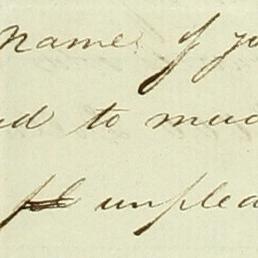 name of yo
d to muc
unplea